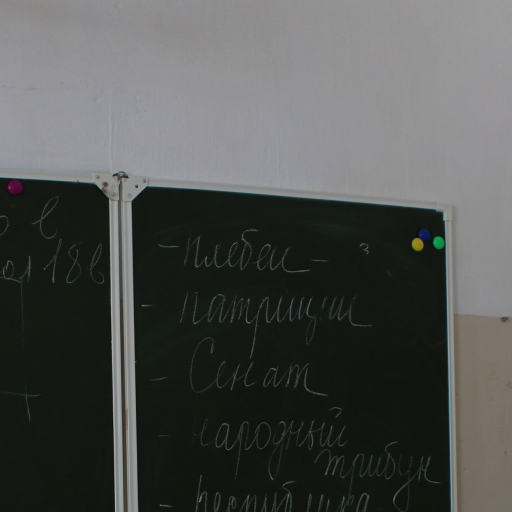 в
18 в
- плебеи -
- патриции
- Сенат
- народный
трибун
- республика